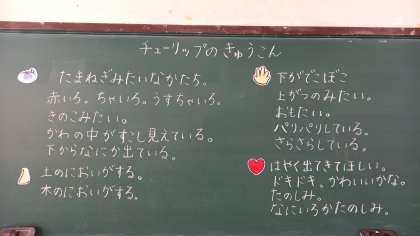 チューリップの きゅうこん
たまねぎみたいなかたち。
赤いろ。ちゃいろ。うすちゃいろ。
きのこみたい。
かわの中がすこし見えている。
下からなにか出ている。
土のにおいがする。
木のにおいがする。
下がでこぼこ
上がつのみたい。
おもたい。
パリパリしている。
さらさらしている。
はやく出てきてほしい。
ドキドキ。かわいいかな。
たのしみ。
なにいろかたのしみ。